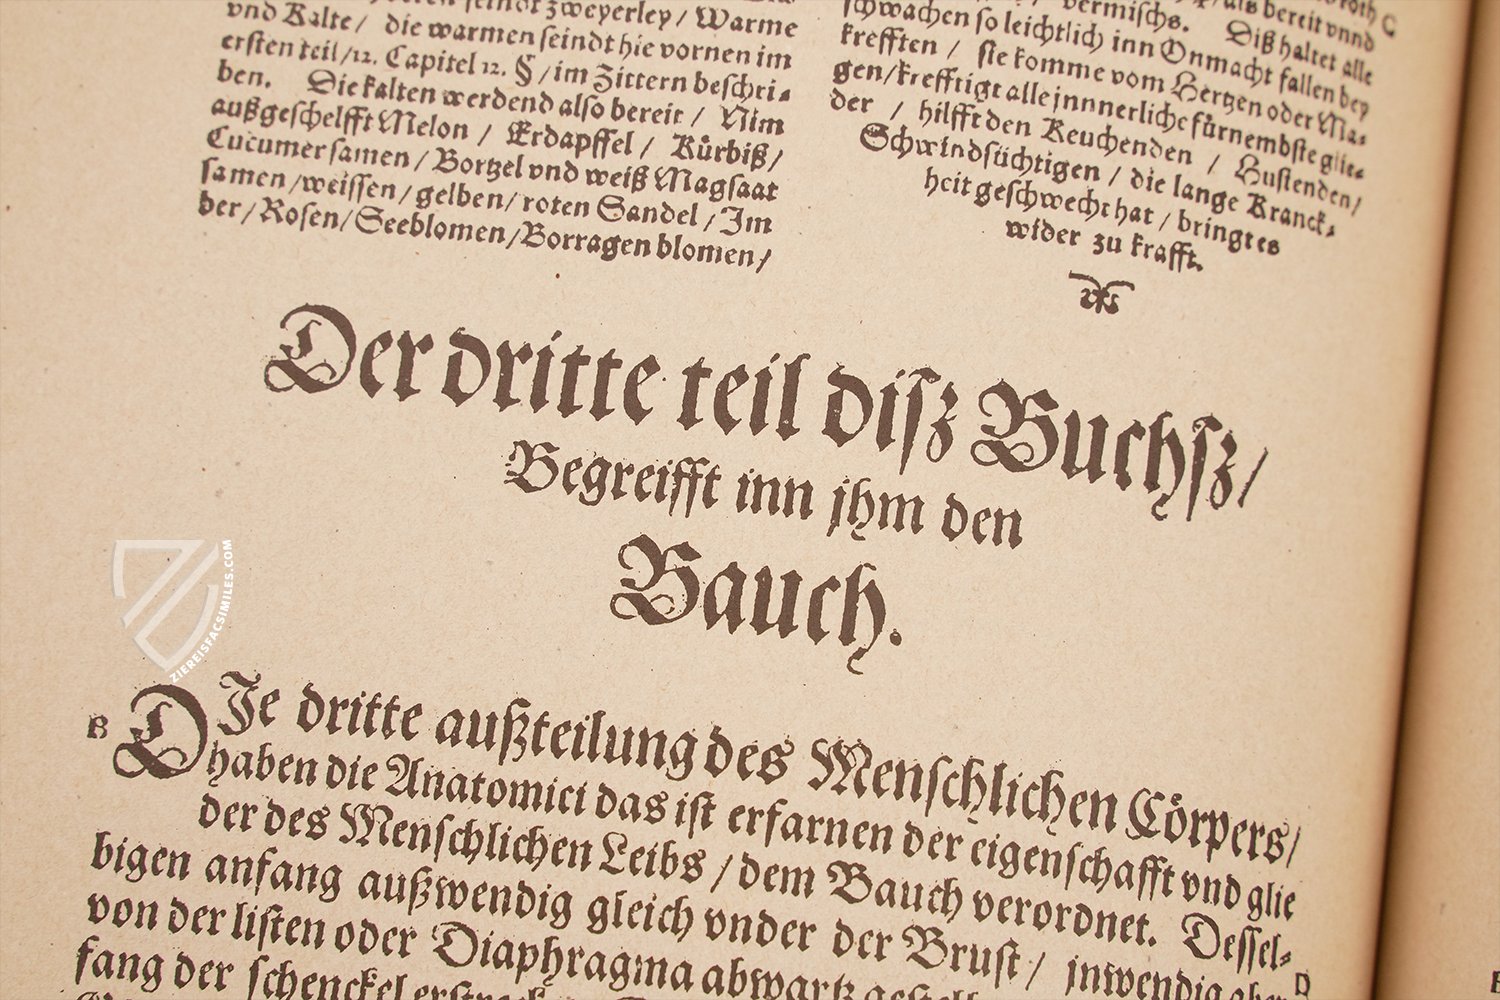 zweyerley / Warme
vnd Kalte / die warmen seindt hie vornen im
ersten teil / 12. Capitel 12. § / im Zittern beschri-
ben. Die kalten werdend also bereit / Nim
außgeschelfft Melon / Erdapffel / Kürbiß /
Cucumer samen / Bortzel vnd weiß Magsaat
samen / weissen / gelben / roten Sandel / Im
ber / Rosen / Seeblomen / Borragen blomen /
vermischs. Diß haltet alle
schwachen so leichtlich inn Onmacht fallen bey
krefften / sie komme vom Hertzen oder Ma-
gen / krefftigt alle jnnnerliche fürnembste glie-
der / hilfft den Keuchenden / Hustenden /
Schwindsüchtigen / die lange Kranck-
heit geschwecht hat / bringt es
wider zu krafft.
Der dritte teil disz Buchsz /
Begreifft inn jhm den
Bauch.
B
DIe dritte außteilung des Menschlichen Cörpers /
haben die Anatomici das ist erfarnen der eigenschafft vnd glie
der des Menschlichen Leibs / dem Bauch verordnet. Dessel-
bigen anfang außwendig gleich vnder der Brust / jnwendig aber
von der listen oder Diaphragma abwartz
fang der schenckel
D
ZIEREISFACSIMILES.COM